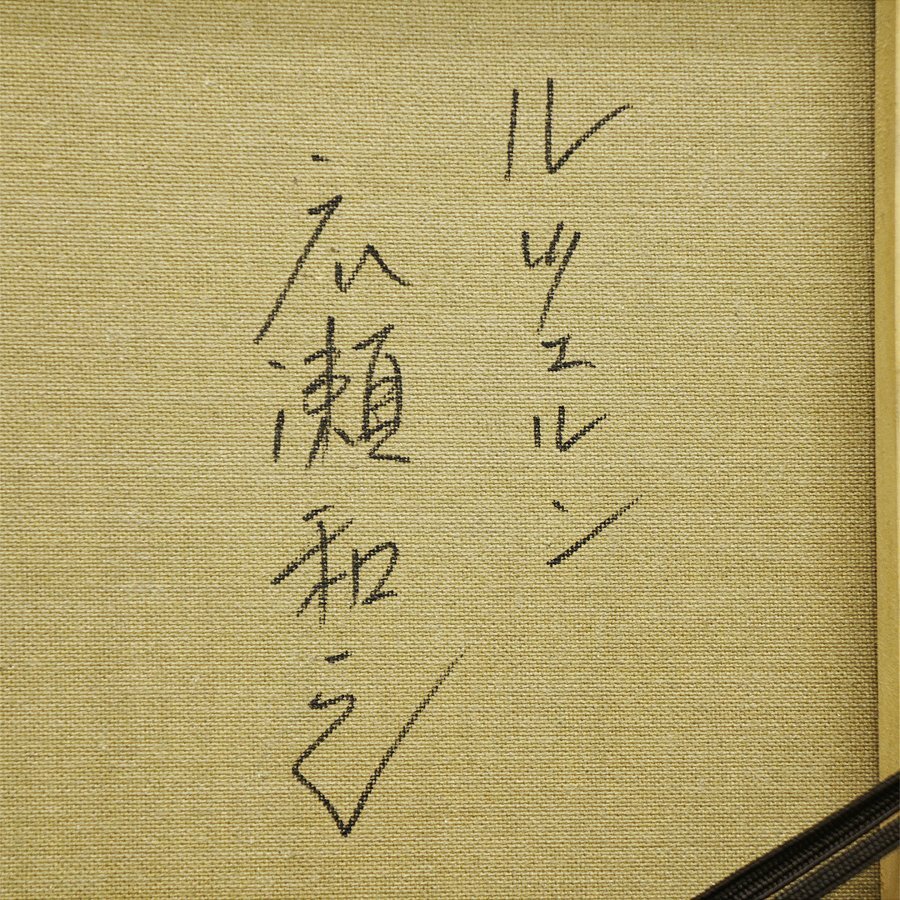 ルツェルン
広瀬和之